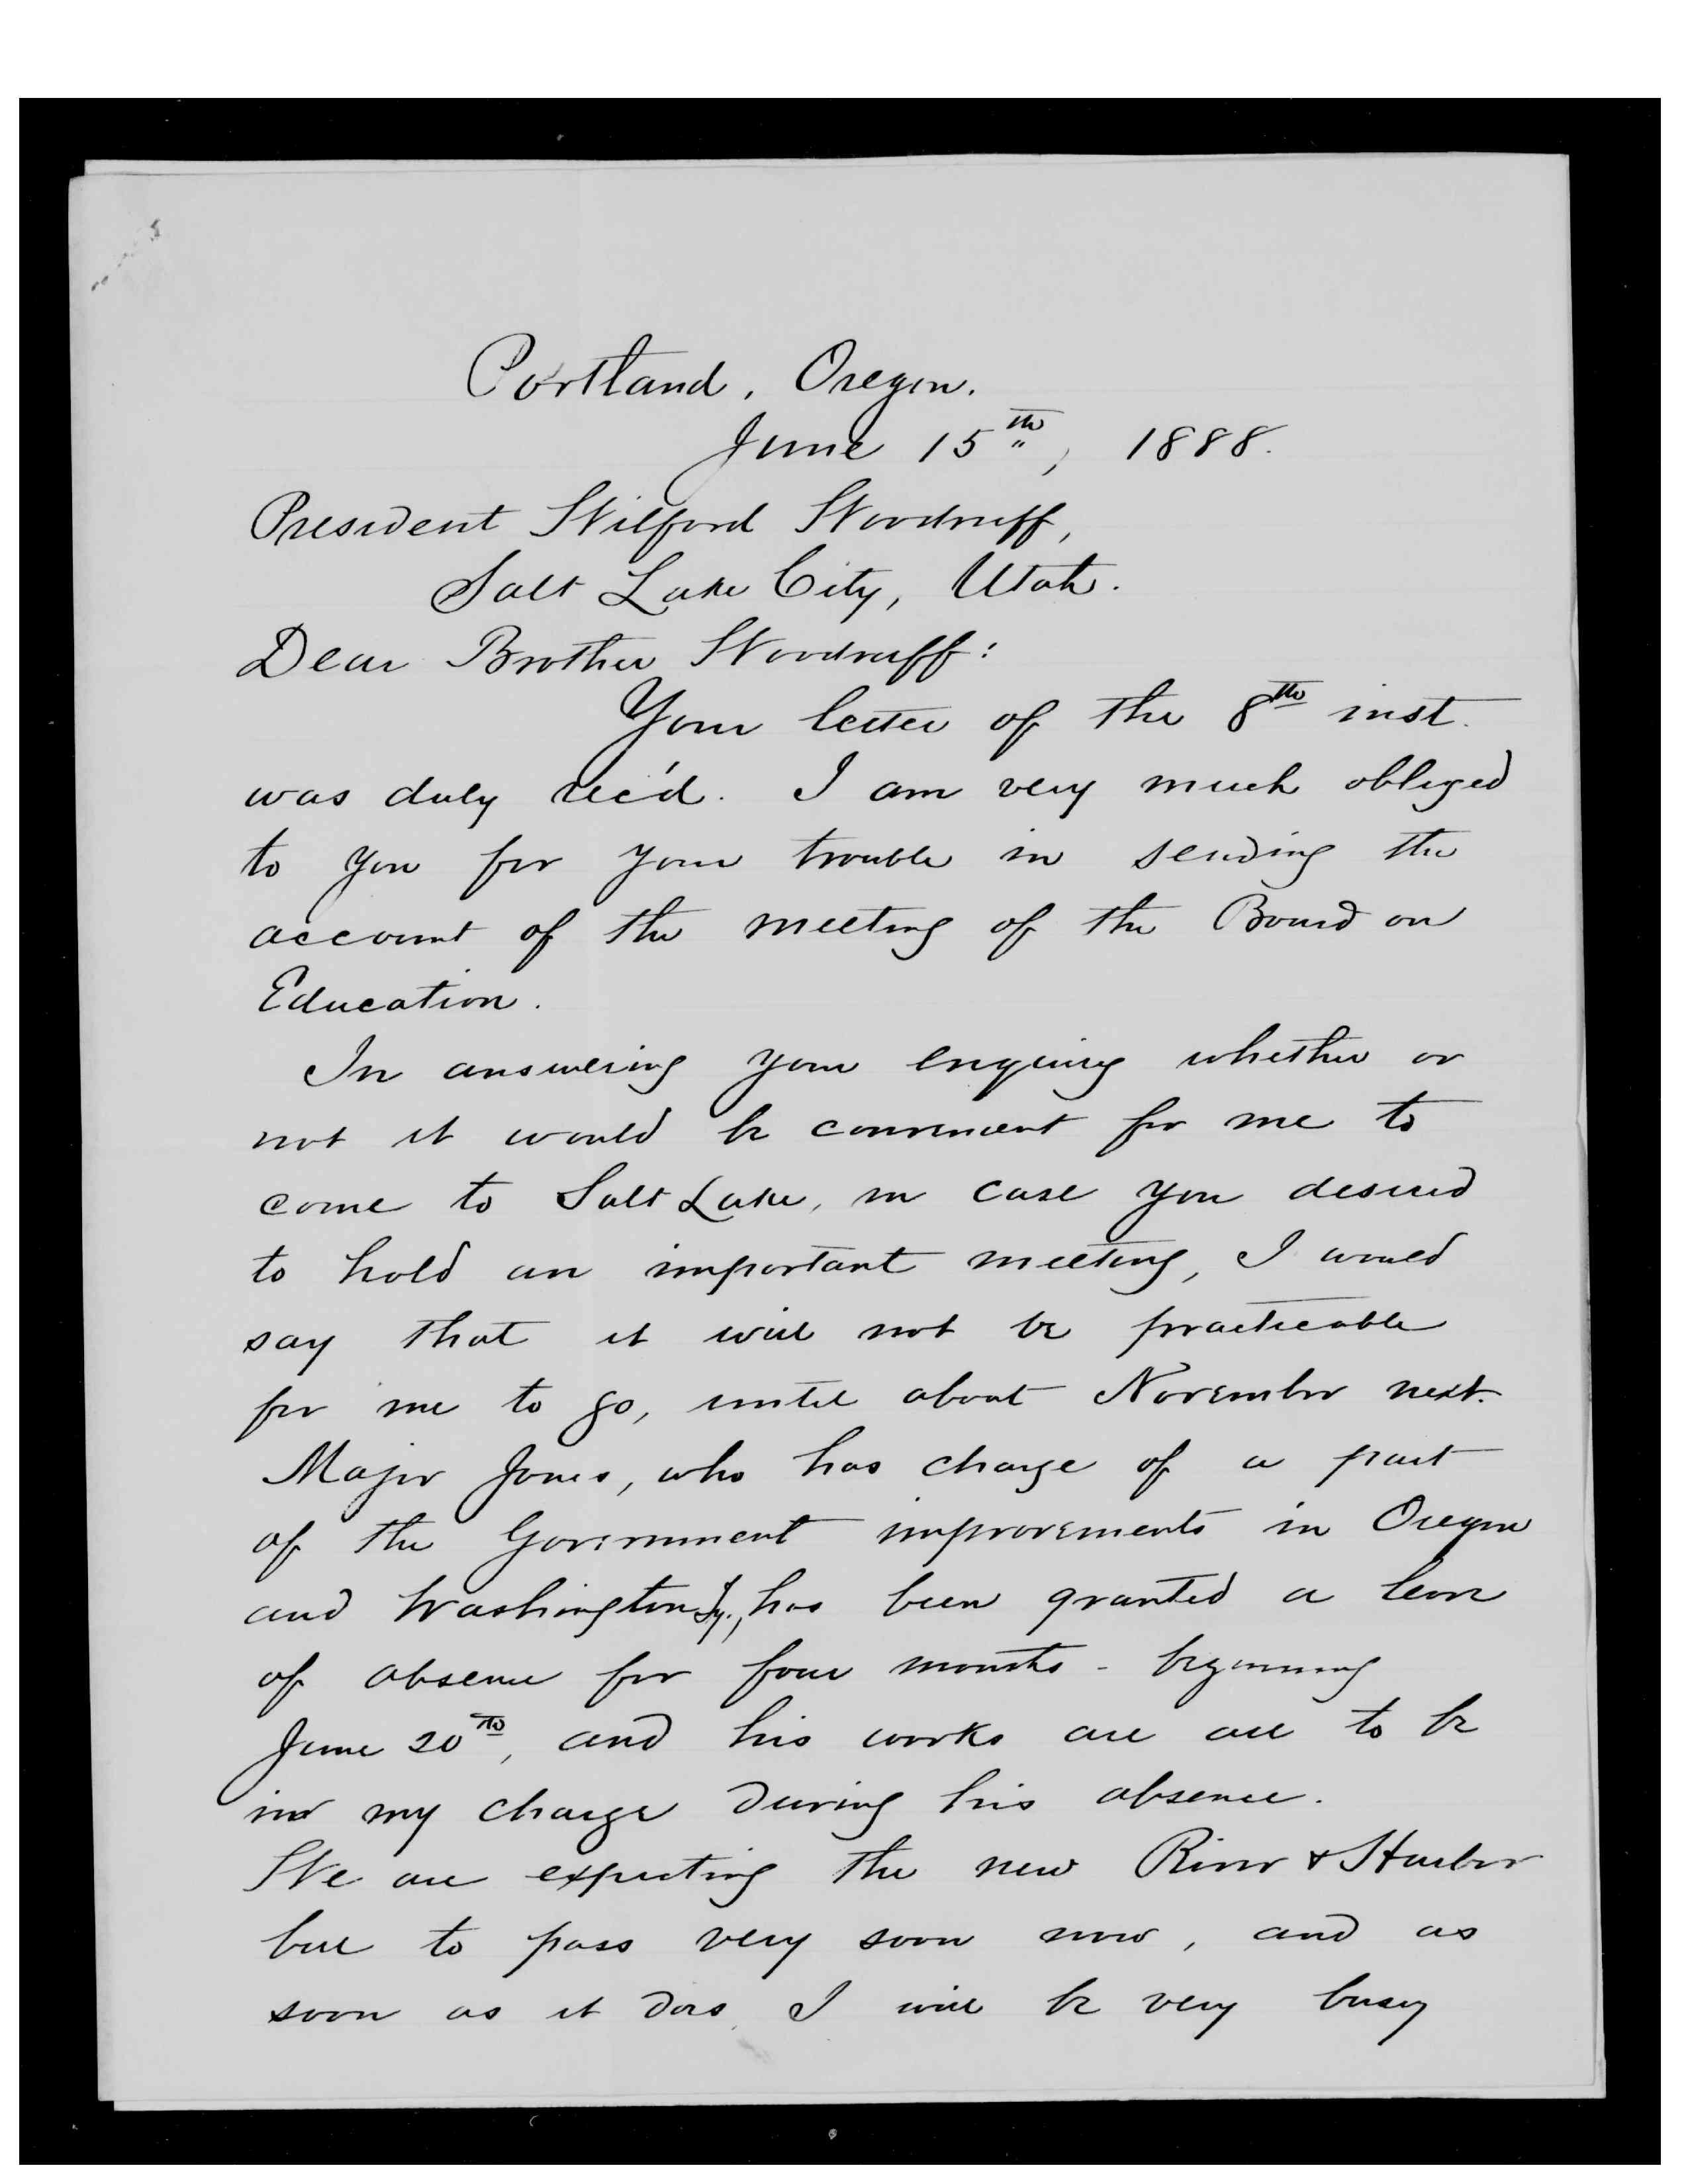 Portland, Oregon.
June 15th, 1888.
President Wilford Woodruff,
Salt Lake City, Utah.
Dear Brother Woodruff:
Your letter of the 8th inst.
was duly rec'd. I am very much obliged
to you for your trouble in sending the
account of the meeting of the Board on
Education.
In answering your enquiry whether or
not it would be convenient for me to
come to Salt Lake, in case you desired
to hold an important meeting, I would
say that it will not be practicable
for me to go, until about November next.
Major Jones, who has charge of a part
of the Government improvements in Oregon
and Washington Ty., has been granted a leave
of absence for four months - beginning
June 20th, and his works are all to be
in my charge during his absence.
We are expecting the new River & Harbor
bill to pass very soon now, and as
soon as it does I will be very busy